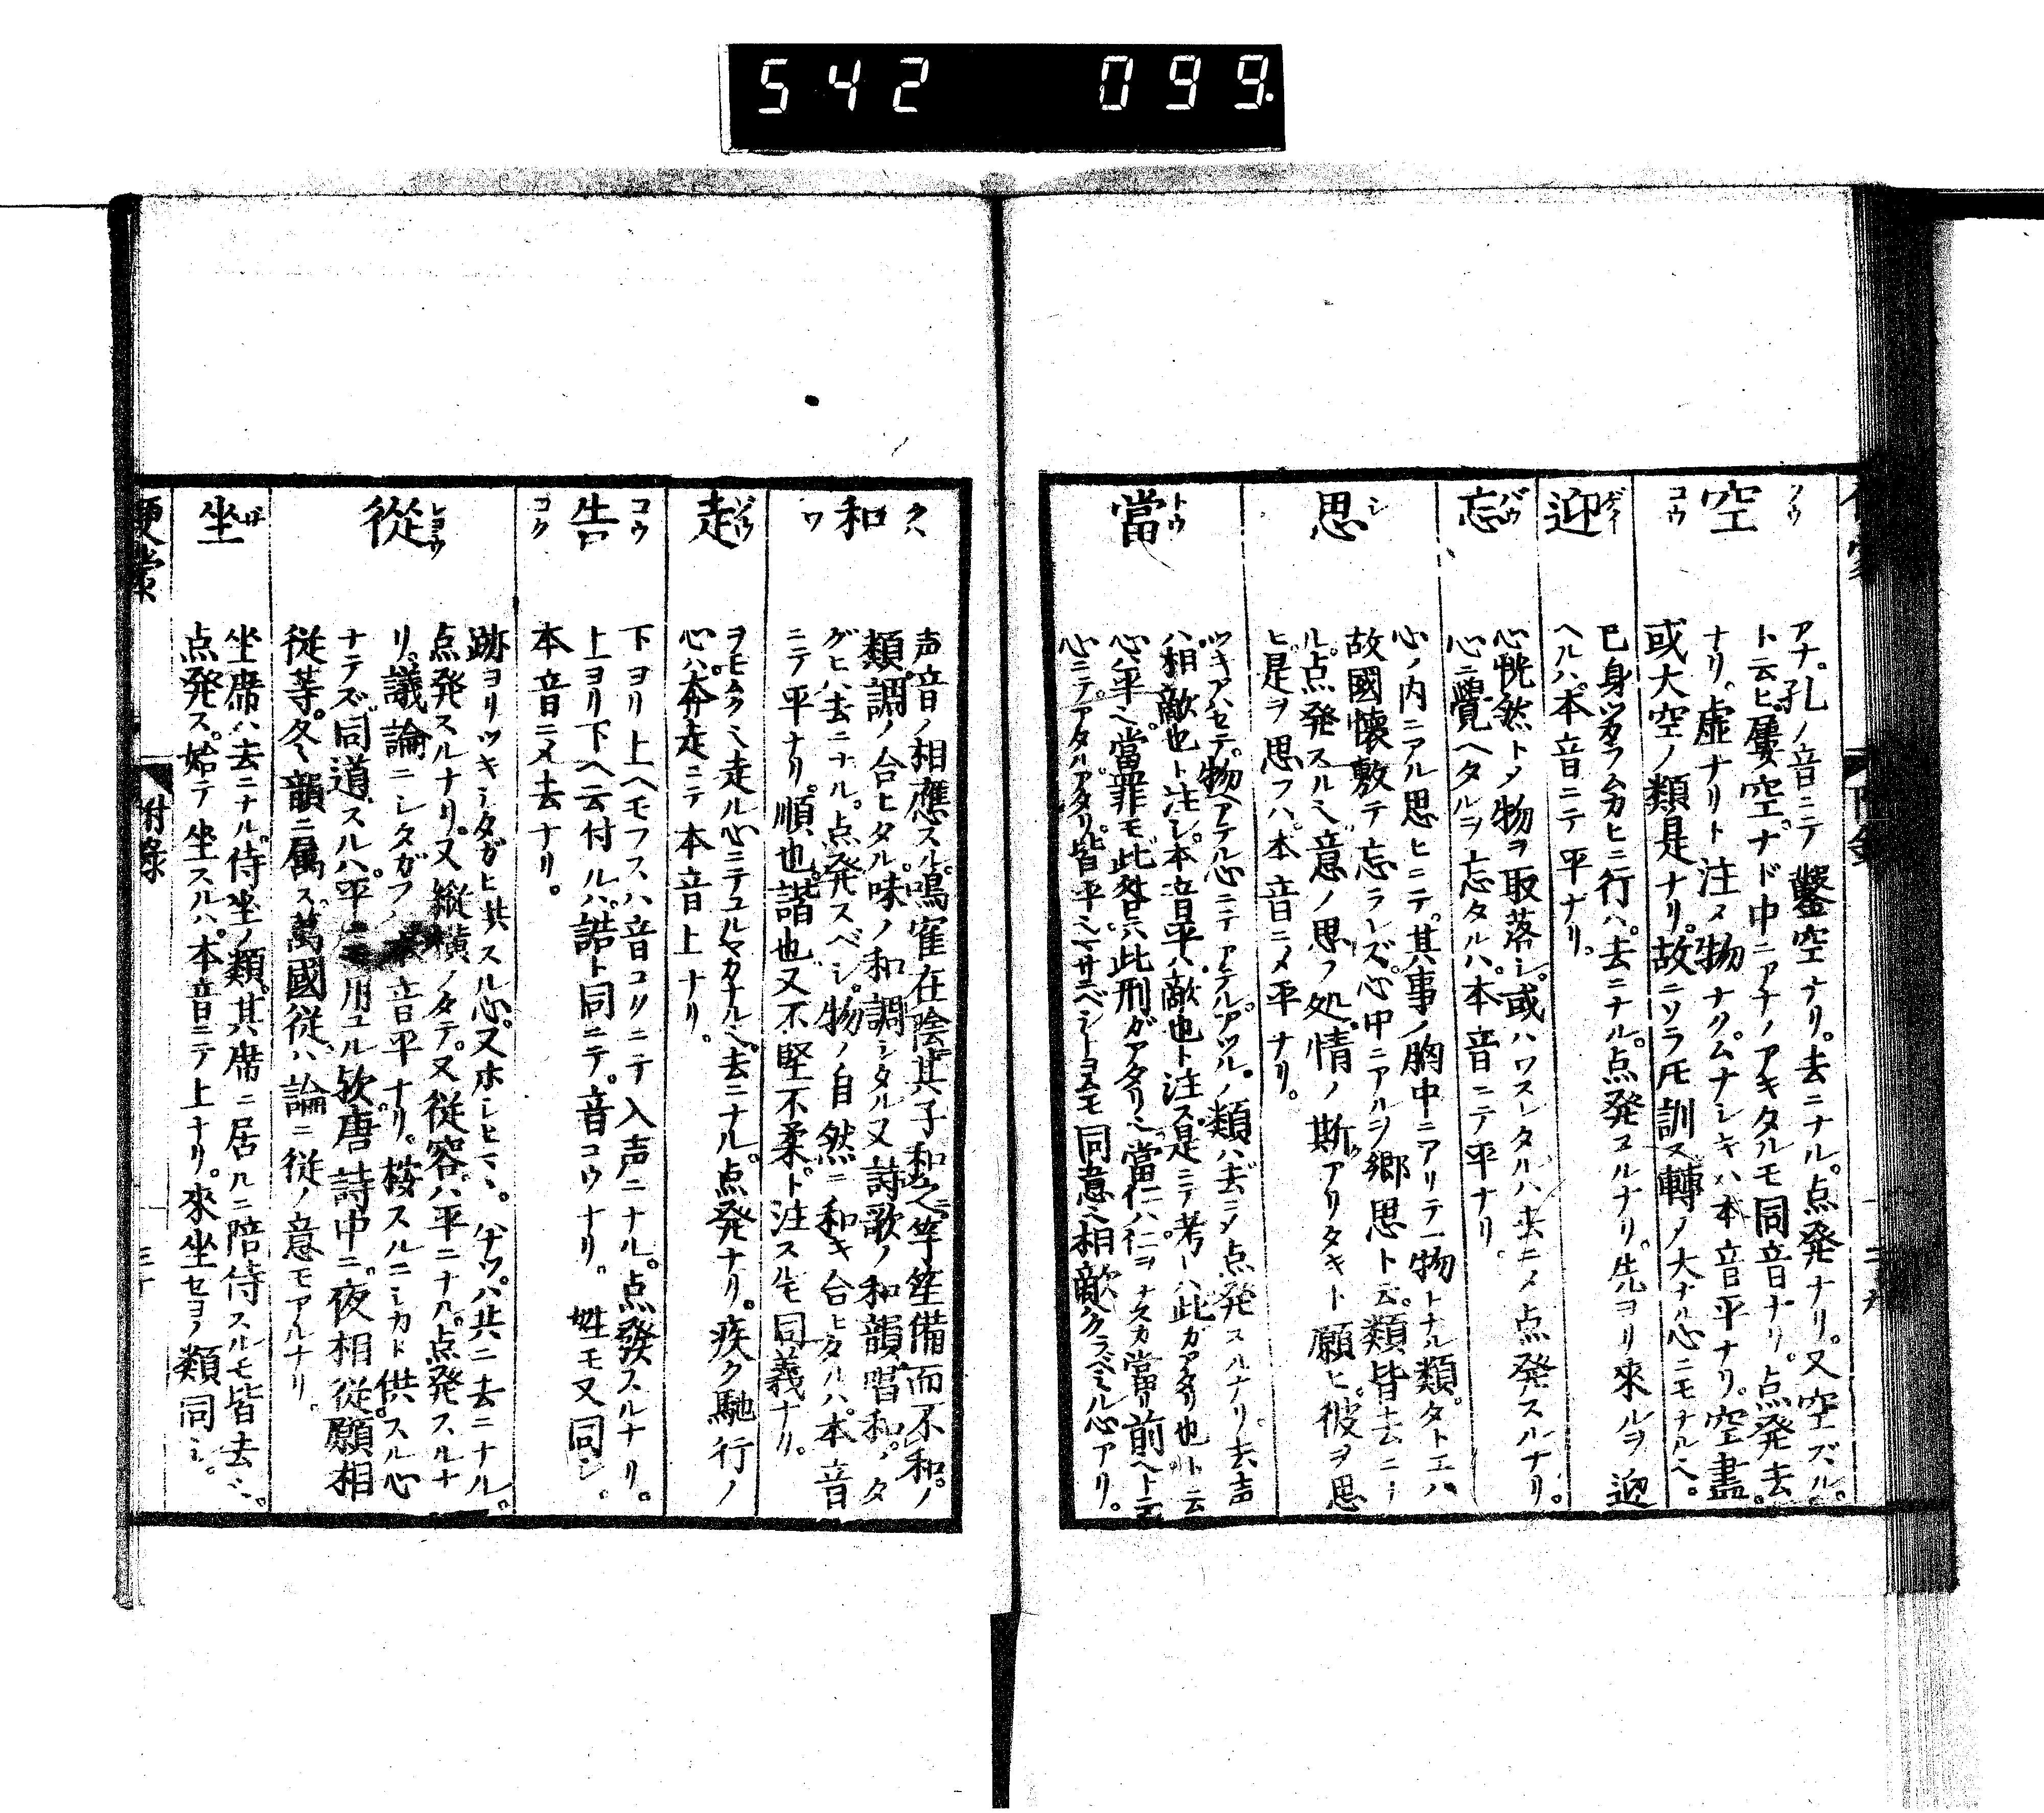 542 099.
クウ
空
コウ
アナ。孔ノ音ニテ鑿空ナリ。去ニナル。点発ナリ。又空ズル。
ト云ヒ。屢空。ナド中ニアナノアキタルモ同音ナリ。点発去。
ナリ。虚ナリト注メ物ナク。ムナシキハ本音平ナリ。空盡。
或大空ノ類是ナリ。故ニソラトモ訓ス轉ノ大ナル心ニモナル也。
ゲイ
迎
已身ツカラムカヒニ行ハ。去ニナル。点発スルナリ。先ヨリ來ルヲ迎
ヘルハ。本音ニテ平ナリ。
バウ
忘
心恍然トメ物ヲ取落シ。或ハワスレタルハ去ニメ点発スルナリ。
心ニ覺ヘタルヲ忘タルハ。本音ニテ平ナリ。
シ
思
心ノ内ニアル思ヒニテ。其事ノ胸中ニアリテ一物トナル類。タトエハ
故國懐敷テ忘ラレズ。心中ニアルヲ郷思ト云。類皆去ニ
ル。点発スル也。意ノ思フ処。情ノ斯アリタキト願ヒ。彼ヲ思
ヒ是ヲ思フハ。本音ニメ平ナリ。
トウ
當
ツキアハセテ。物ヘアテル心ニテアテル。アツル。ノ類ハ去ニメ点発スルナリ。去声
ハ相敵也ト注シ。本音平ハ敵也ト注ス是ニテ考レハ此ガアタリ也ト云
心平也。當罪モ此咎ニハ此刑ガアタリ也。當仁ハ仁ヲナスカ當リ前ヘト云
心ニテ。アタルアタリ。皆平也。マサニベシトヨムモ同意也。相敵クラベミル心アリ。
クハ
和
ワ
声音ノ相應スル。鳴寉在陰其子和之竽笙備而不和。ノ
類。調ノ合ヒタル。味ノ和調シタル又詩歌ノ和韻。唱和。ノタ
グヒハ去ニナル。点発スベシ。物ノ自然ニ和キ合ヒタルハ。本音
ニテ平ナリ。順也。諧也又不堅不柔。ト注スルモ同義ナリ。
ソウ
走
ヲモムク也走ル心ニテユルヤカナル也。去ニナル。点発ナリ。疾ク馳行ノ
心ハ。奔走ニテ本音上ナリ。
コウ
告
コク
下ヨリ上ヘモフスハ音コクニテ入声ニナル。点發スルナリ。
上ヨリ下ヘ云付ルハ。誥ト同ニテ。音コウナリ。姓モ又同シ。
本音ニメ去ナリ。
シヨウ
從
跡ヨリツキシタガヒ共スル心。又ホシヒマヽ。ハナツ。ハ共ニ去ニナル。
点発スルナリ。又縦横ノタテ。又従容ハ平ニナル。点発スルナ
リ。議論ニシタガフハ本音平ナリ。按スルニシカト供スル心
ナテズ。同道スルハ。平ニ用ユル欤唐詩中ニ。夜相従願相
従等。冬ノ韻ニ属ス。萬國従ハ論ニ従ノ意モアルナリ。
ザ
坐
坐席ハ去ニナル。侍坐ノ類。其席ニ居ルニ陪侍スルモ皆去也。
点発ス。始テ坐スルハ。本音ニテ上ナリ。來坐セヨノ類同シ。
附錄
三十